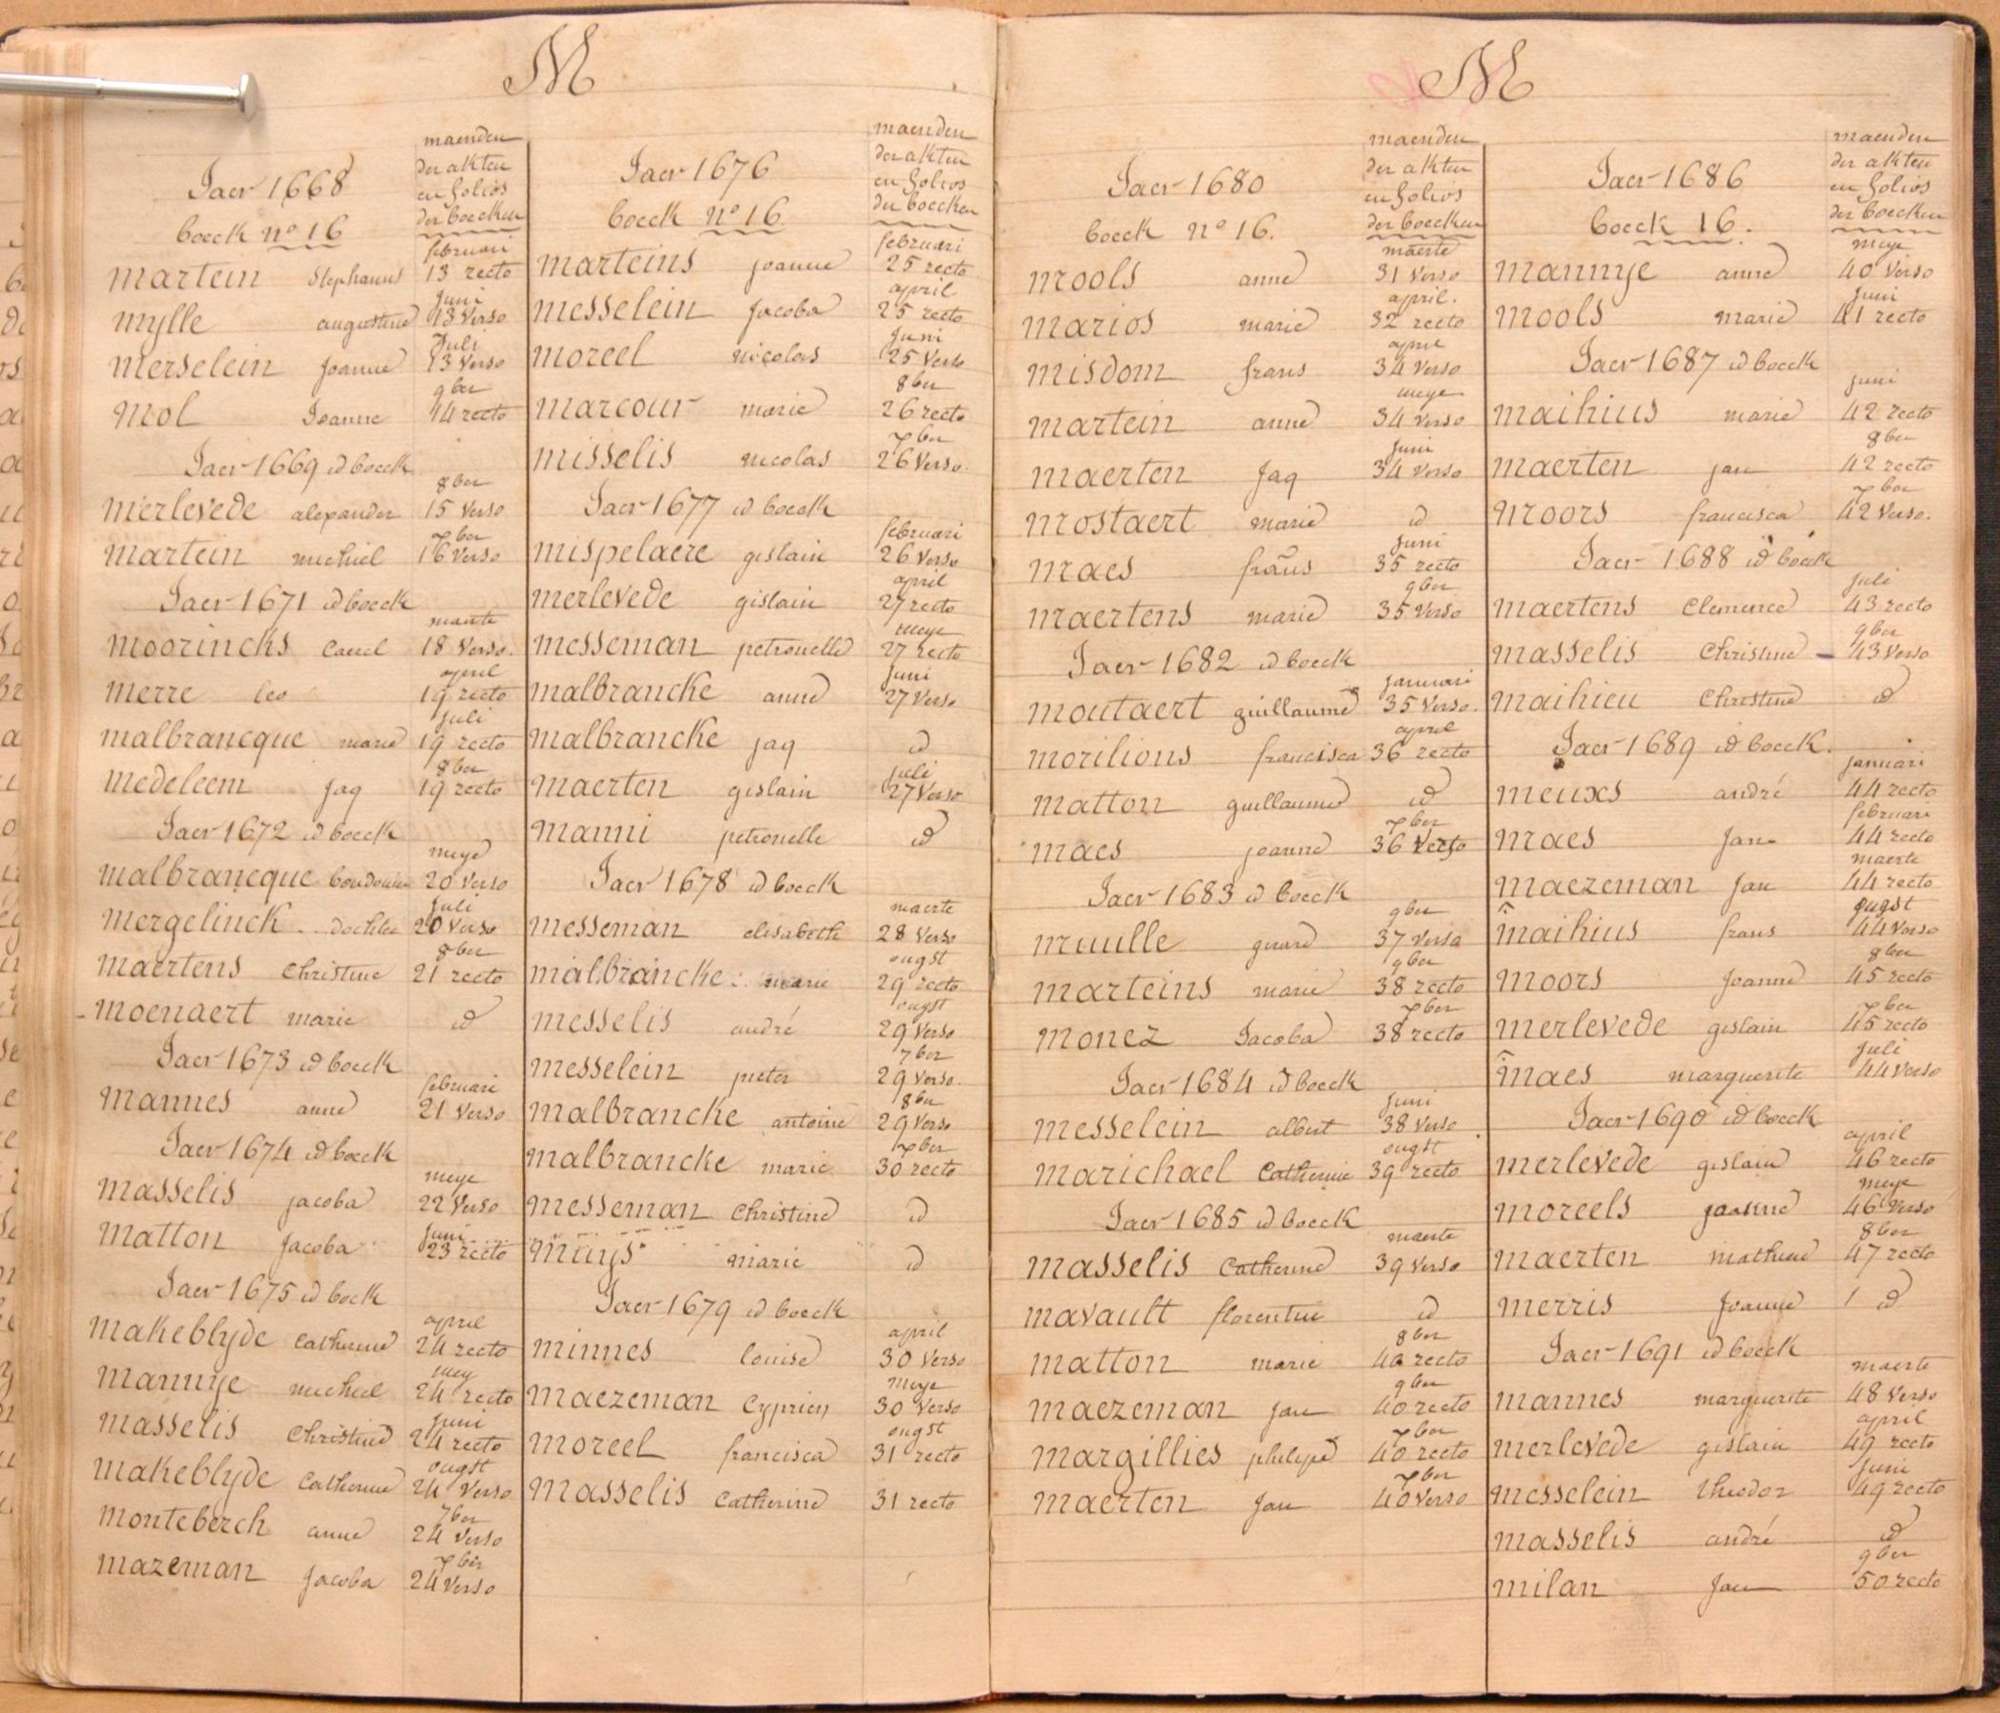 M
Jaer 1668
boeck nº 16
maenden
der akten
en folios
der boecken
februari
martein Stephanus 13 recto
juni
mylle augustine 13 Verso
Juli
merselein Joanne 13 Verso
9ber
mol Joanne 14 recto
Jaer 1669 id boeck
8ber
merlevede alexander 15 Verso
7ber
martein michiel 16 Verso
Jaer 1671 id boeck
maerte
moorincks Carel 18 Verso
april
merre leo 19 recto
juli
malbrancque marie 19 recto
8ber
medeleem jaq 19 recto
Jaer 1672 id boeck
meye
malbrancque boudouin 20 Verso
juli
mergelinck 20 Verso
8ber
maertens Christine 21 recto
moenaert marie id
Jaer 1673 id boeck
februari
mannes anne 21 Verso
Jaer 1674 id boeck
meye
masselis jacoba 22 Verso
juni
matton Jacoba 23 recto
Jaer 1675 id boek
april
makeblyde Catherine 24 recto
mey
mannye michiel 24 recto
juni
masselis Christine 24 recto
ougst
makeblyde Catherine 24 Verso
7ber
monteberch anne 24 Verso
7ber
mazeman Jacoba 24 Verso
Jaer 1676
boeck nº 16
maenden
der akten
en folios
der boecken
februari
marteins joanne 25 recto
april
messelein Jacoba 25 recto
Juni
moreel nicolas 25 Verso
8ber
marcour marie 26 recto
7ber
misselis nicolas 26 Verso
Jaer 1677 id boeck
februari
mispelaere gislain 26 Verso
april
merlevede gislain 27 recto
meye
messeman petronelle 27 recto
juni
malbrancke anne 27 Verso
malbrancke jaq id
juli
maerten gislain 27 Verso
manni petronelle id
Jaer 1678 id boeck
maerte
messeman elisabeth 28 Verso
ougst
malbrancke marie 29 recto
ougst
messelis andré 29 Verso
7ber
messelein pieter 29 Verso
8ber
malbrancke antoine 29 Verso
7ber
malbrancke marie 30 recto
messeman Christine id
muys marie id
Jaer 1679 id boeck
april
minnes louise 30 Verso
meye
maezeman Cyprien 30 Verso
ougst
moreel francisca 31 recto
masselis Catherine 31 recto
M
Jaer 1680
boeck nº 16.
maenden
der akten
en folios
der boecken
maerte
mools anne 31 Verso
april.
marios marie 32 recto
april
misdom frans 34 Verso
meye
martein anne 34 Verso
juni
maerten Jaq 34 Verso
mostaert marie id
juni
maes frans 35 recto
9ber
maertens marie 35 Verso
Jaer 1682 id boeck
januari
moutaert guillaume 35 Verso
april
morilions francisca 36 recto
matton guillaume id
7ber
maes joanne 36 Verso
Jaer 1683 id boeck
9ber
muulle gerard 37 Verso
9ber
marteins marie 38 recto
7ber
monez Jacoba 38 recto
Jaer 1684 id boeck
juni
messelein albert 38 Verso
ougst
marichael Catherine 39 recto
Jaer 1685 id boeck
maerte
masselis Catherine 39 Verso
mavault florentine id
8ber
matton marie 40 recto
9ber
maezeman Jan 40 recto
7ber
margillies philipe 40 recto
7ber
maerten Jan 40 Verso
Jaer 1686
boeck 16.
maenden
der akten
en folios
der boecken
meye
mannye anne 40 Verso
juni
mools marie 41 recto
Jaer 1687 id boeck
juni
maihius marie 42 recto
8ber
maerten jan 42 recto
7ber
moors francisca 42 Verso.
Jaer 1688 id boeck
juli
maertens Clemence 43 recto
9ber
masselis Christine 43 Verso
maihieu Christine id
Jaer 1689 id boeck.
januari
meuxs andré 44 recto
februari
maes Jan 44 recto
maerte
maezeman Jan 44 recto
ougst
maihius frans 44 Verso
8ber
moors Joanne 45 recto
7ber
merlevede gislain 45 recto
juli
maes marguerite 44 Verso
Jaer 1690 id boeck
april
merlevede gislain 46 recto
meye
moreels joanne 46 Verso
8ber
maerten mathieu 47 recto
merris Joanne id
Jaer 1691 id boeck
maerte
mannes marguerite 48 Verso
april
merlevede gislain 49 recto
juni
messelein theodor 49 recto
masselis andré id
9ber
milan Jan 50 recto